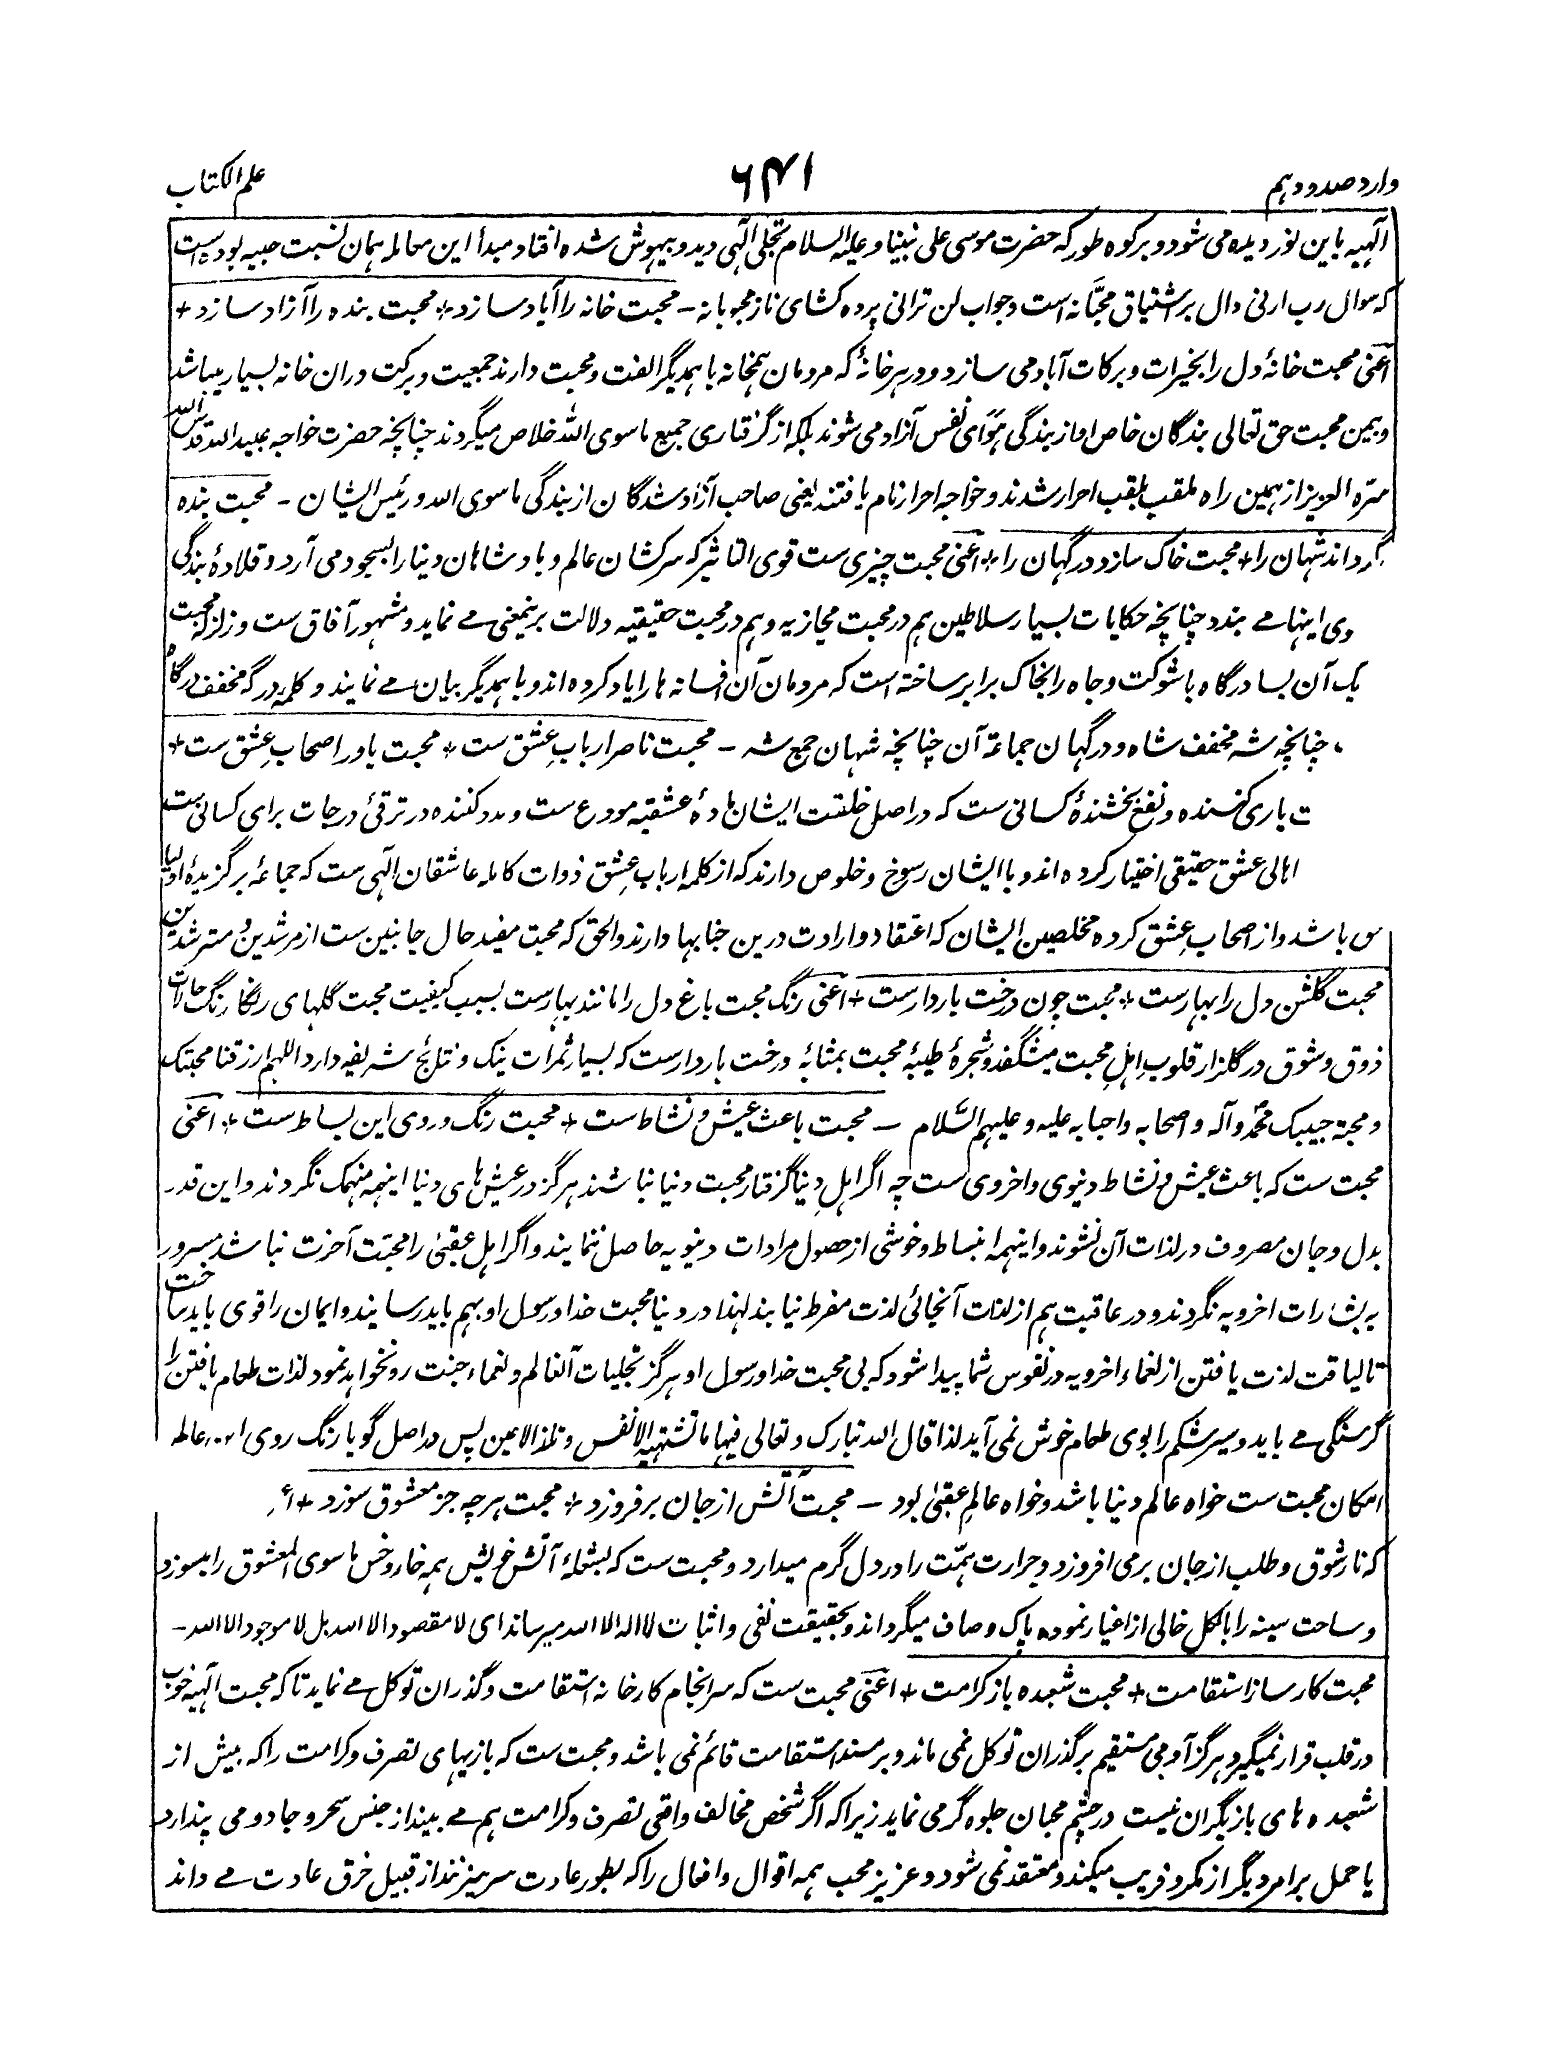 وارد صد و دهم
۶۴۱
علم الکتاب
الٓهیه باین نور دیده می شود و بر کوه طور که حضرت موسی علی نبینا و علیه السلام تجلی الٓهی دید و بیهوش شده افتاد مبدأ این معامله همان نسبت حبیه بوده است
که سوال رب ارنی دال بر اشتیاق محبّانه است و جواب لن ترانی پرده کشای ناز محبوبانه - محبت خانه را آباد سازد + محبت بنده را آزاد سازد +
اَعنی محبت خانۀ دل را بخیرات و برکات آباد می سازد و در هر خانۀ که مردمان همخانه با همدیگر الفت و محبت دارند جمعیت و برکت دران خانه بسیار میباشد
و بیمن محبت حق تعالی بندگان خاص او از بندگی هوای نفس آزاد می شوند بلکه از گرفتاری جمیع ماسوی الله خلاص میگردند چنانچه حضرت خواجه عبید الله قدس الله
سره العزیز از همین راه ملقب بلقب احرار شدند و خواجه احرار نام یافتند یعنی صاحب آزاد شدگان از بندگی ماسوی الله و رئیس ایشان - محبت بنده
گرداند شهان را + محبت خاک سازد درگهان را + اَعنی محبت چیزی ست قوی التاثیر که سرکشان عالم و بادشاهان دنیا را بسجود می آرد و قلادۀ بندگی
اینها مے بندد چنانچه حکایات بسیار سلاطین هم در محبت مجازیه و هم در محبت حقیقیه دلالت برینمعنی مے نماید و مشهور آفاق ست و زلزله محبت
آن بسا درگاه باشوکت و جاه را بخاک برابر ساخته است که مردمان آن افسانه ها را یاد کرده اند و باهمدیگر بیان مے نمایند و کلمه درگه مخفف درگاه
چنانچه شه مخفف شاه و درگهان جماعۀ آن چنانچه شهان جمع شه - محبت ناصر ارباب عشق ست + محبت یاور اصحاب عشق ست +
یاری کننده و نفع بخشندۀ کسانی ست که در اصل خلقت ایشان مادۀ عشقیه مودع ست و مدد کننده در ترقئ درجات برای کسانی ست
اهالی عشق حقیقی اختیار کرده اند و با ایشان رسوخ و خلوص دارند که از کلمه ارباب عشق ذوات کامله عاشقان الٓهی ست که جماعۀ برگزیدۀ اولیا
باشد و از اصحاب عشق کرده مخلصین ایشان که اعتقاد و ارادت درین جنابها دارند و الحق که محبت مفید حال جانبین ست از مرشدین و مسترشدین
محبت گلشن دل را بهارست + محبت چون درخت باردارست + اَعنی رنگ محبت باغ دل را مانند بهارست بسبب کیفیت محبت گلهای رنگارنگ حالات
ذوق و شوق در گلزار قلوب اهلِ محبت میشگفد و شجرۀ طیبۀ محبت بمثابۀ درخت باردارست که بسیار ثمرات نیک و نتائج شریفه دارد اللهم ارزقنا محبتک
و محبة حبیبک محمدؐ و آله و اصحابه و احبابه علیه و علیهم السلام - محبت باعث عیش و نشاط ست + محبت رنگ و روی این بساط ست + اَعنی
محبت ست که باعث عیش و نشاط دنیوی و اخروی ست چه اگر اهلِ دنیا گرفتار محبت دنیا نباشند هرگز در عیش های دنیا اینهمه منهمک نگردند و این قدر
بدل و جان مصروف در لذات آن نشوند و اینهمه انبساط و خوشی از حصول مرادات دنیویه حاصل ننمایند و اگر اهل عقبیٰ را محبّت آخرت نباشد مسرور
به بشارات اخرویه نگردند و در عاقبت هم از لذات آنجائی لذت مفرط نیابند لهذا در دنیا محبت خدا و رسول او بهم باید رسانید و ایمان را قوی باید ساخت
تا لیاقت لذت یافتن از نعماء اخرویه در نفوس شما پیدا شود که بی محبت خدا و رسول او هرگز تجلیات آنعالم و نعماء جنت رو نخواهد نمود لذات طعام یافتن را
گرسنگی مے باید و سیر شکم را بوی طعام خوش نمی آید لذا قال الله تبارک و تعالی فیها ما تشتهیه الانفس و تلذ الاعین پس در اصل گویا رنگ روی
امکان محبت ست خواه عالم دنیا باشد و خواه عالمِ عقبیٰ بود - محبت آتش از جان برفروزد + محبت هر چه جز معشوق سوزد +
که نار شوق و طلب از جان برمی افروزد و حرارت همّت را در دل گرم میدارد و محبت ست که بشعلۀ آتش خویش همه خار و خس ماسوی المعشوق را بسوزد
و ساحت سینه را بالکل خالی از اغیار نموده پاک و صاف میگرداند و بحقیقت نفی و اثبات لا اله الا الله میرساند ای لا مقصود الا الله بل لا موجود الا الله -
محبت کارساز استقامت + محبت شعبده باز کرامت + اَعنی محبت ست که سرانجام کارخانه استقامت و گذران توکل مے نماید تا که محبت الٓهیه خوب
در قلب قرار نمیگیرد هرگز آدمی مستقیم بر گذران توکل نمی ماند و بر مسند استقامت قائم نمی باشد و محبت ست که بازیهای تصرف و کرامت را که بیش از
شعبده های بازیگران نیست در چشم محبان جلوه گر می نماید زیرا که اگر شخص مخالف واقعی تصرف و کرامت هم مے بیند از جنس سحر و جادو می پندارد
یا حمل بر امر دیگر از مکر و فریب میکند و معتقد نمی شود و عزیز محب همه اقوال و افعال را که بطور عادت سر میزنند از قبیل خرق عادت مے داند